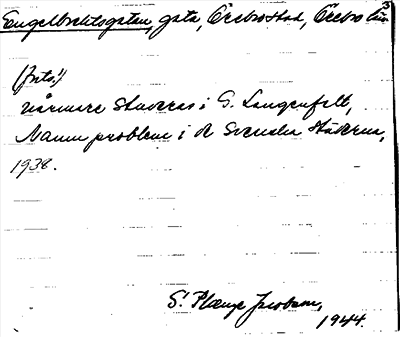 Engelbrektsgatan, gata, Örebro stad, Örebro län
3
(forts.)
närmare studeras i G. Langenfelt,
Namnproblem i de Svenska städerna,
1938.
S. Plænge Jacobson,
1944.